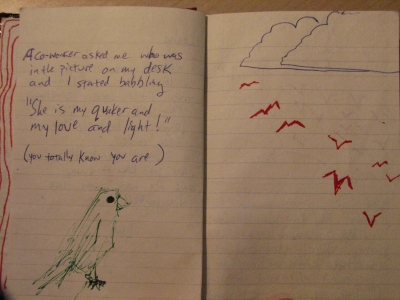 A co-worker asked me who was
in the picture on my desk
and I started babbling
"She is my quaker and
my love and light!"
(you totally know you are)